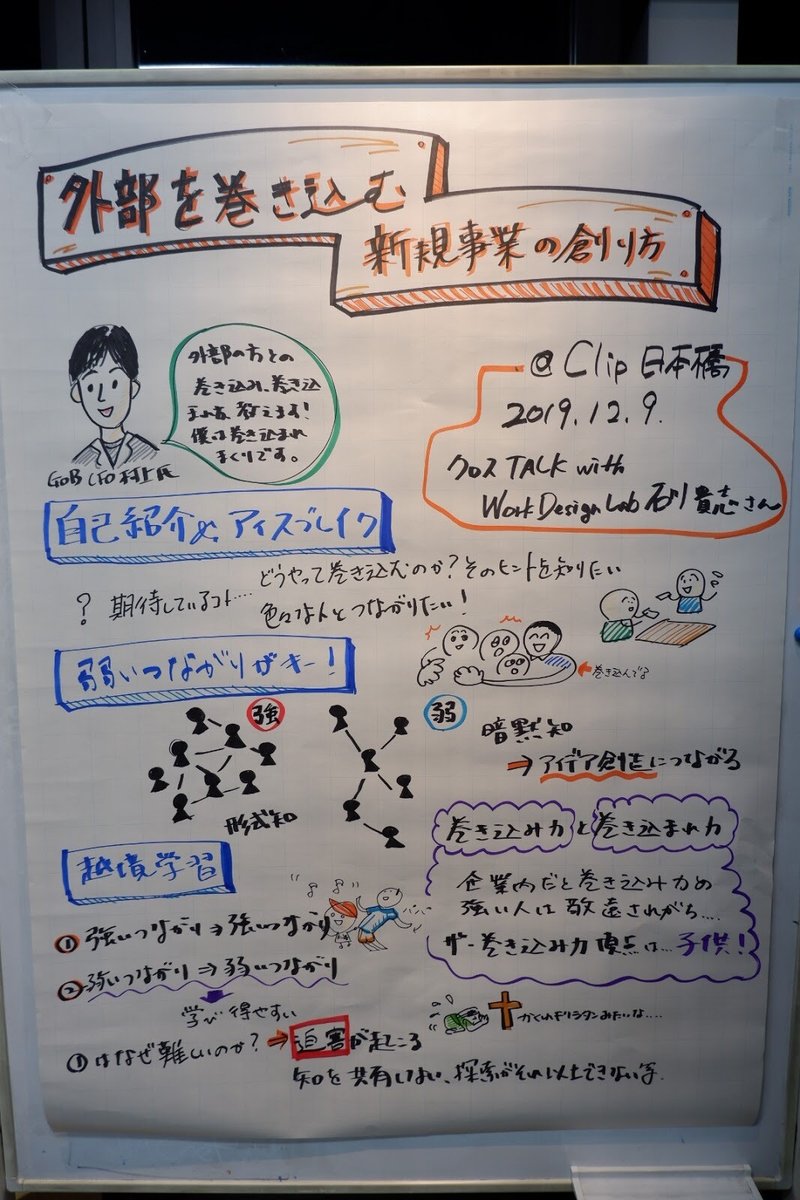 外部を巻き込む
新規事業の創り方
外部の方との
巻き込み、巻き込
まれ方、教えます!
僕は巻き込まれ
まくりです。
GOB CFO 村上氏
@ Clip 日本橋
2019.12.9.
クロス TALK with
Work Design Lab 石川貴志さん
自己紹介&アイスブレイク
? 期待しているコト…
どうやって巻き込むのか?そのヒントを知りたい
色々な人とつながりたい!
巻き込んでる
弱いつながりがキー!
強
形式知
弱
暗黙知
⇒アイデア創造につながる
巻き込み力と巻き込まれ力
企業内だと巻き込み力の
強い人は敬遠されがち….
ザ・巻き込み力頂点は…子供!
越境学習
① 強いつながり⇒強いつながり
②強いつながり⇒弱いつながり
学び得やすい
①はなぜ難しいのか?⇒迫害が起こる
かくれキリシタンみたいな….
知を共有しない、探索がそれ以上できない等.